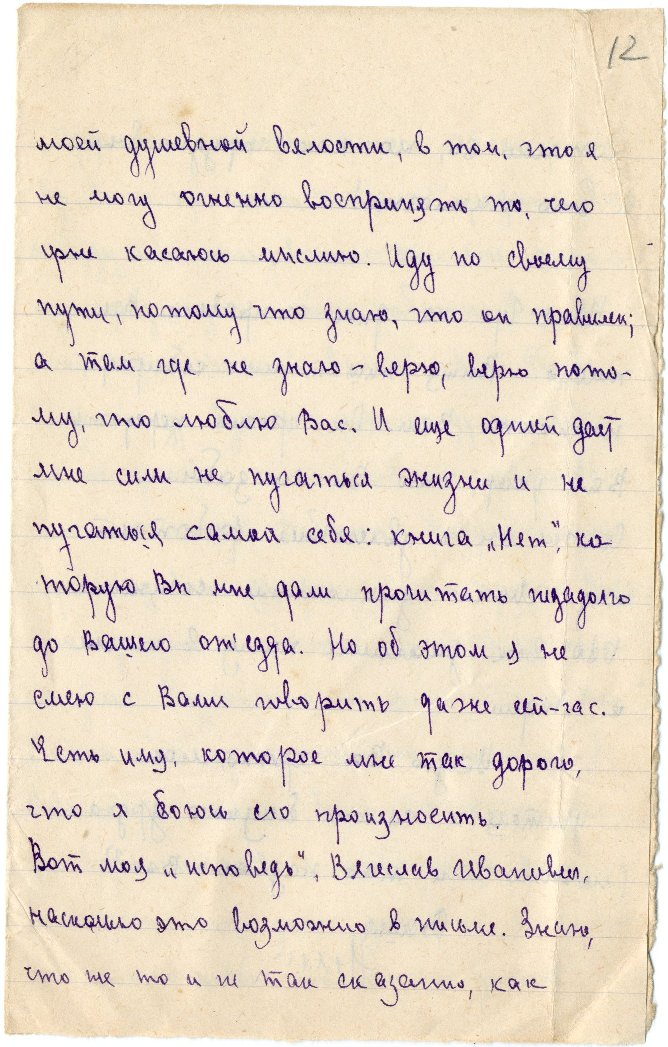 12
моей душевной вялости, в том, что я
не могу огненно воспринять то, чего
уже касаюсь мыслию. Иду по своему
пути, потому что знаю, что он правилен;
а там где не знаю – верю, верю пото-
му, что люблю Вас. И еще одной дает
мне силы не пугаться жизни и не
пугаться самой себя: книга „Нет", ко-
торую Вы мне дали прочитать незадолго
до Вашего от'езда. Но об этом я не
смею с Вами говорить даже сей-час.
Есть имя, которое мне так дорого,
что я боюсь его произносить.
Вот моя „исповедь", Вячеслав Иванович,
насколько это возможно в письме. Знаю,
что не то и не так сказано, как